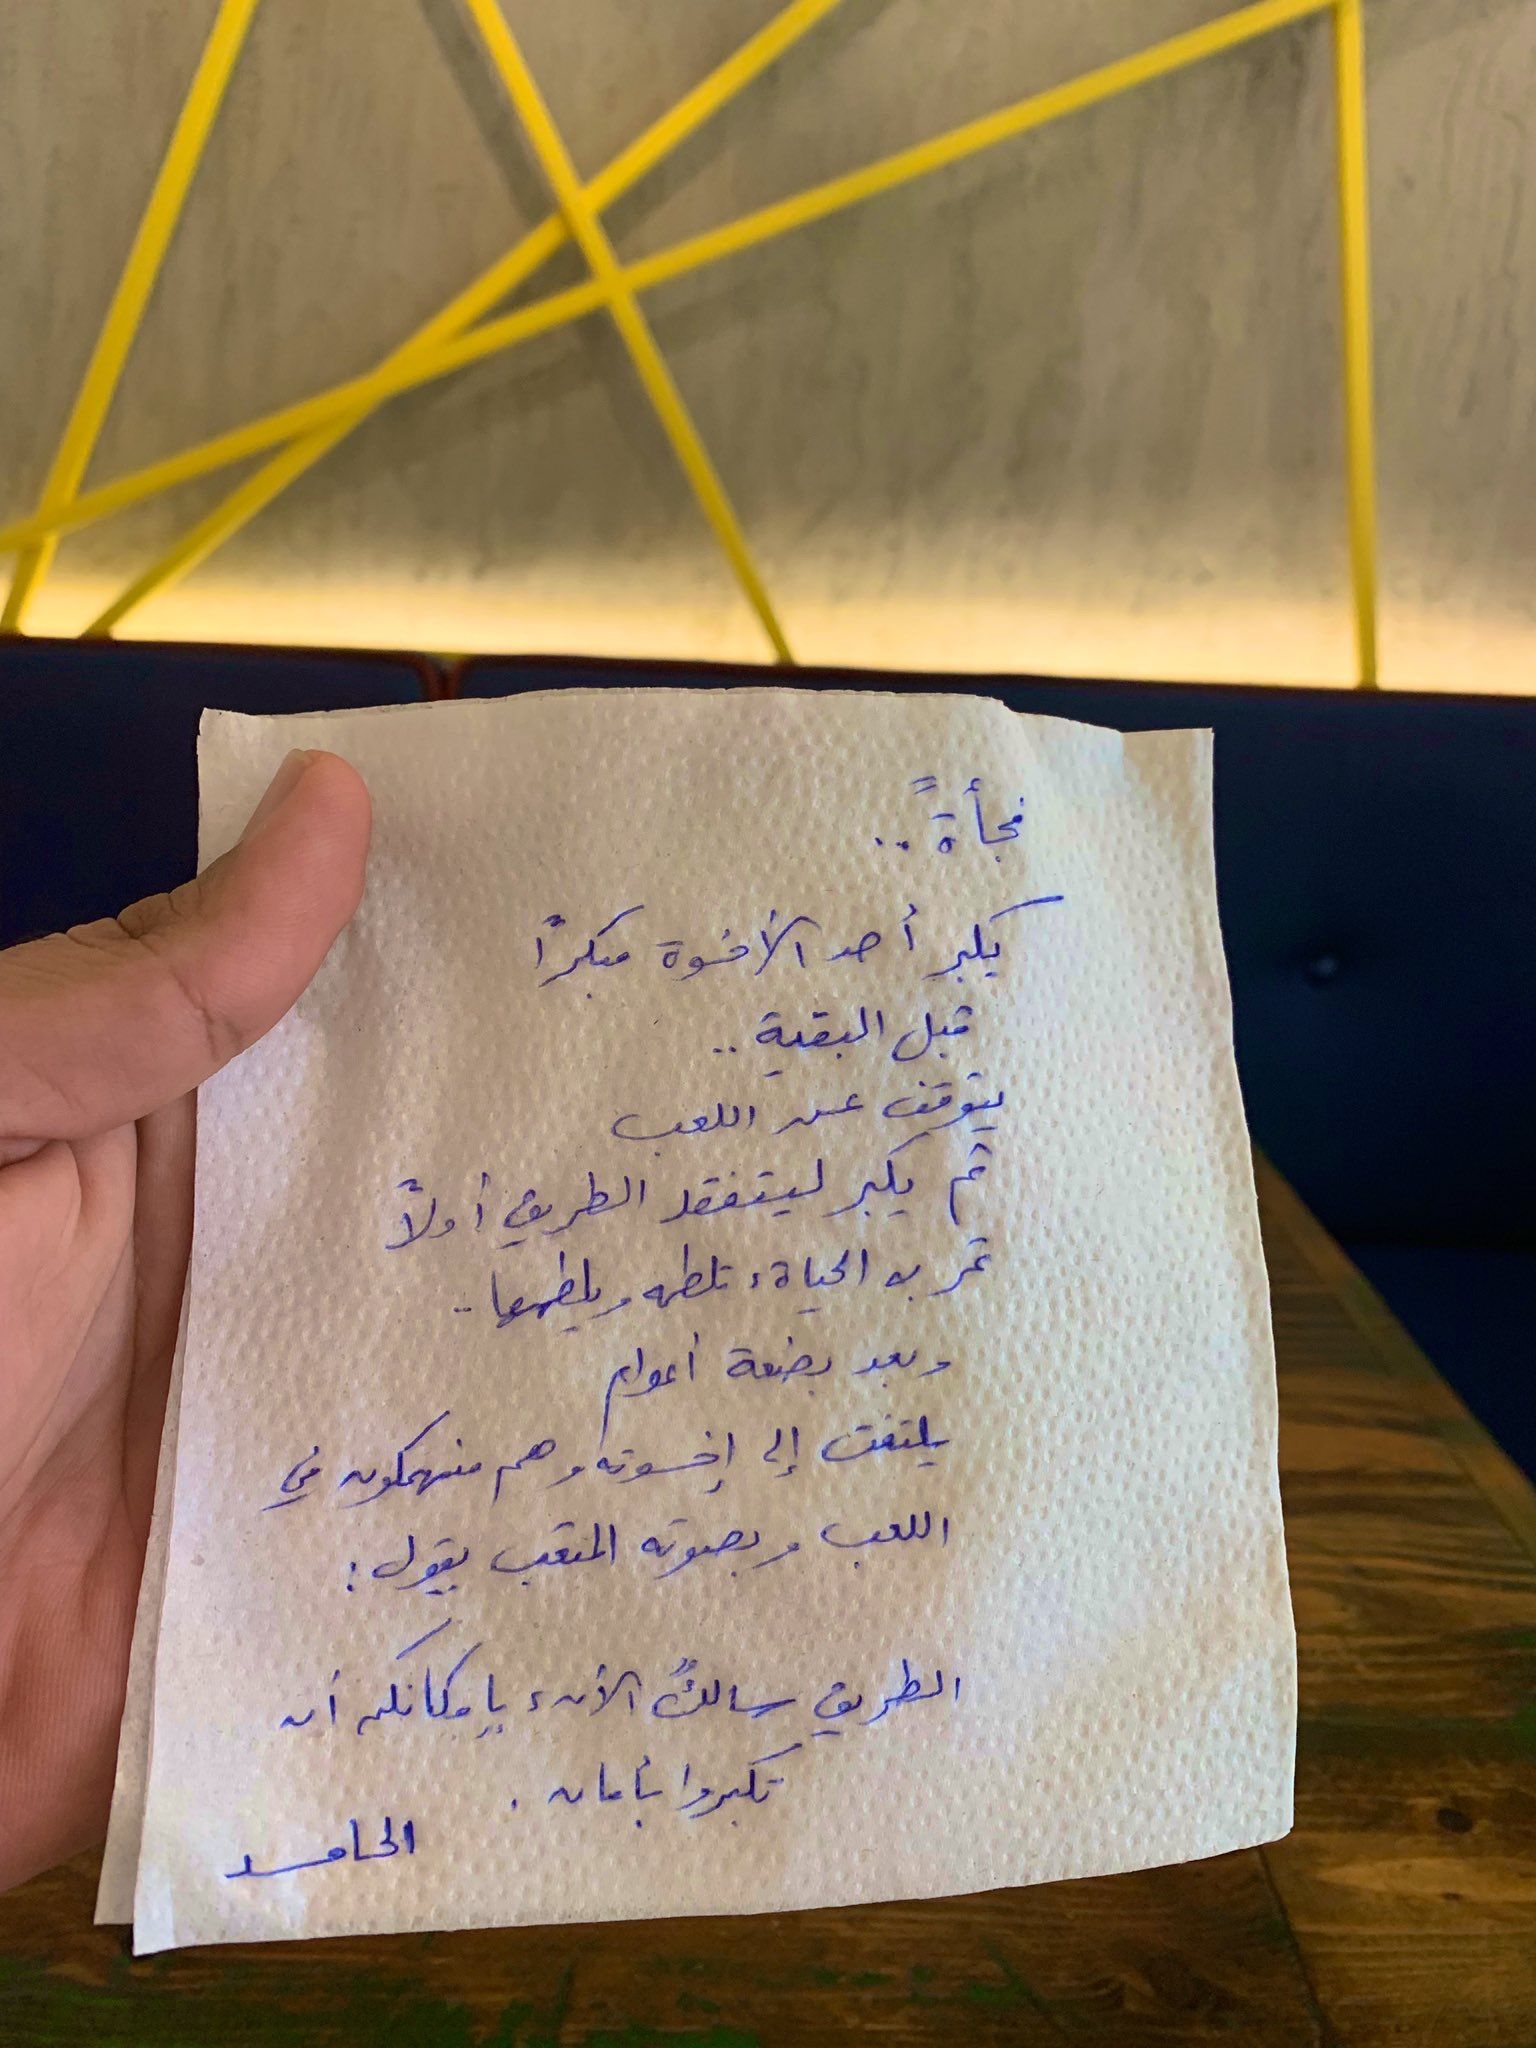 فجأةً ..
يكبر أحد الأخوة مبكرًا
قبل البقية ..
يتوقف عن اللعب
ثم يكبر ليتفقد الطريق أولاً
تمر به الحياة، تلطمه ويلطمها ..
وبعد بضعة أعوام
يلتفت إلى إخوته وهم منهمكون في
اللعب وبصوته المتعب يقول :
الطريق سالكٌ الآن، بإمكانكم أن
تكبروا بأمان .
الحامد